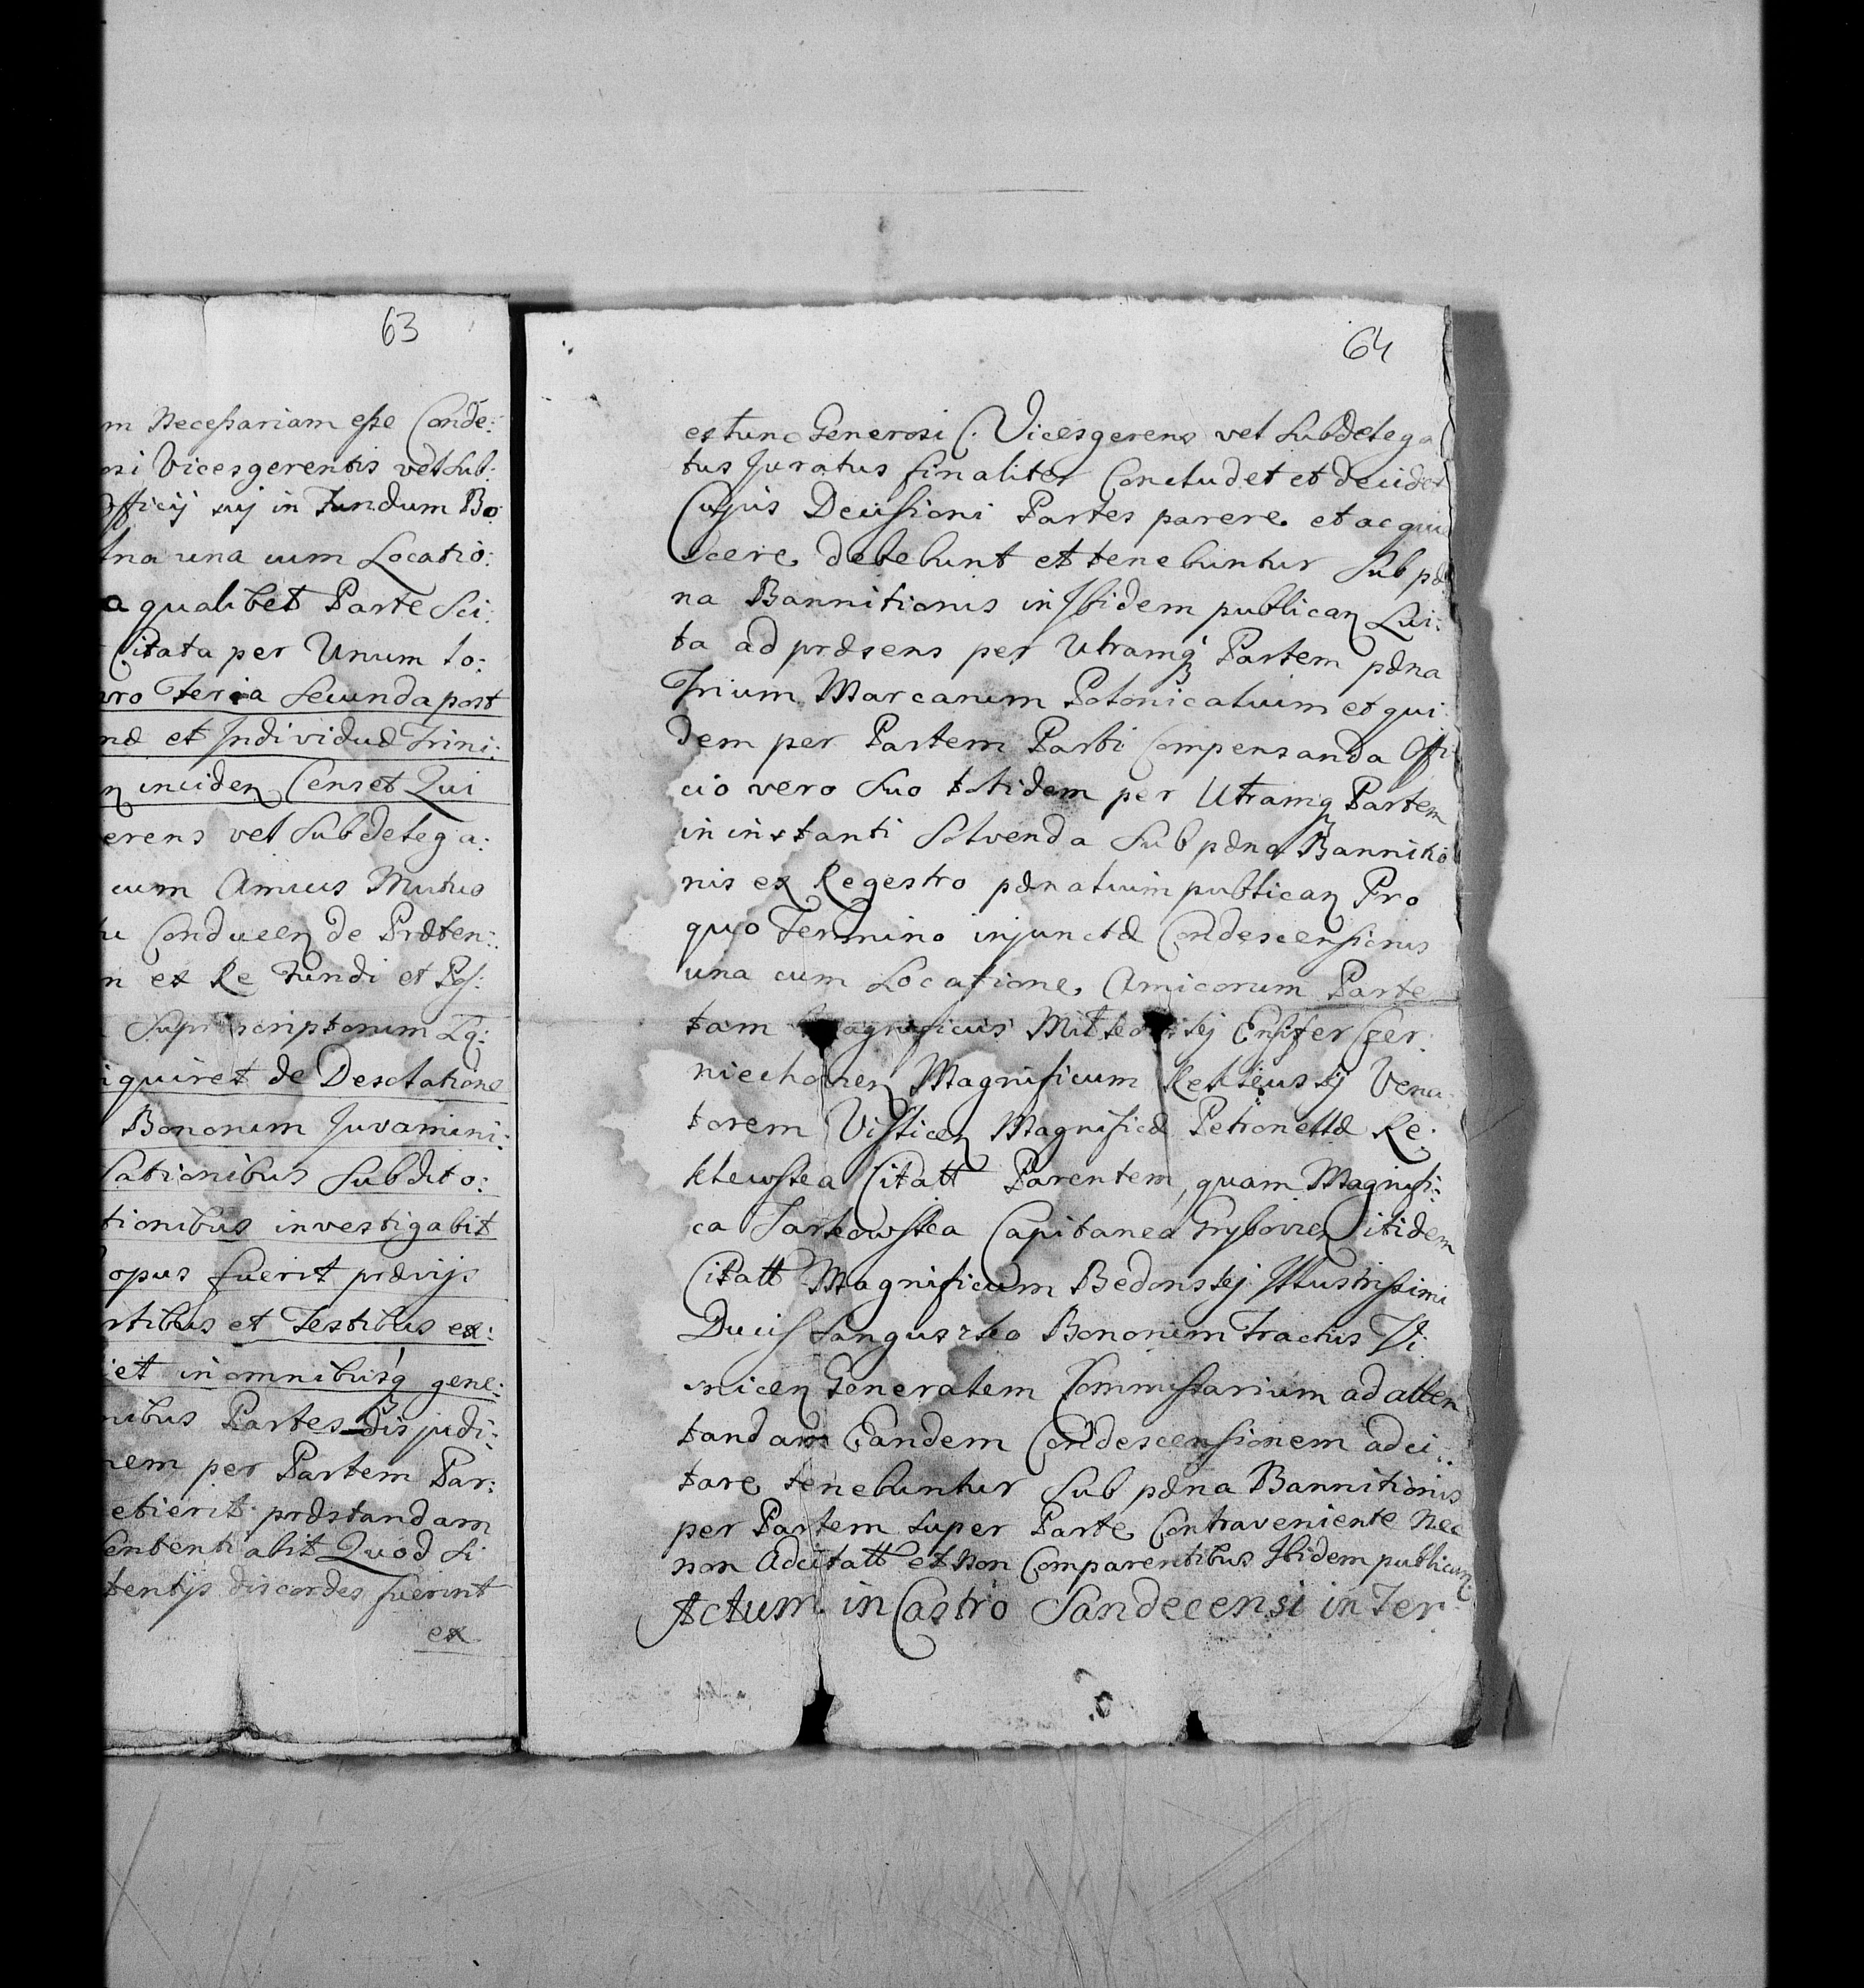 63
m necessariam esse Conde:
si Vicesgerentis vel Sub:
Officij sui in Fundum Bo:
una cum Locatio:
a qualibet Parte Sci:
Citata per Unum to:
pro Feria Secunda post
næ et Individuæ Trini:
inciden Censet Qui
erens vel Subdelega:
cum Amicis Mutuo
Conducen de Præten:
n ex Re Fundi et
Suprascriptorum
iquiret de Desolatione
Bonorum Juvamini:
sationibus Subdito:
tionibus investigabit
opus fuerit prævijs
rtibus et Testibus ex:
iet in omnibusq gene:
nibus Partes disjudi:
nem per Partem Par:
etierit præstandam
Sententiabit Quod si
tentijs discordes fuerint
ex
64
extunc Generosi C. Vicesgerens vel Subdelega
tus Juratus finaliter Concludet et decidet
Cujus Decisioni Partes parere et acqui
scere debebunt et tenebuntur Sub pæ
na Bannitionis in Ibidem publican Lui:
ta ad præsens per Utramq Partem pæna
Trium Marcarum Polonicalium et qui
dem per Partem Parti Compensanda Offi
cio vero Suo totidem per Utramq Partem
in instanti Solvenda Sub pæna Bannitio
nis ex Regestro pænalium publican Pro
quo Termino injunctæ Condescensionis
una cum Locatione Amicorum Parte
tam Magnificus Ensifer Czer:
niechovien Magnificum Vena
torem Vislicen Magnificæ Petronellæ Re:
klewska Citatt Parentem, quam Magnifi:
ca Capitanea Grybovien itidem
Citatt Magnificum Bedonskj Illustrissimi
Ducis Sanguszko Bonorum Tractus Vi:
snicen Generalem Commissarium ad atten
tandam Eandem Condescensionem adci:
tare tenebuntur Sub pæna Bannitionis
per Partem super Parte Contraveniente Nec
non Adcitatt et non Comparentibus Ibidem publican
Actum in Castro Sandecensi in Ter